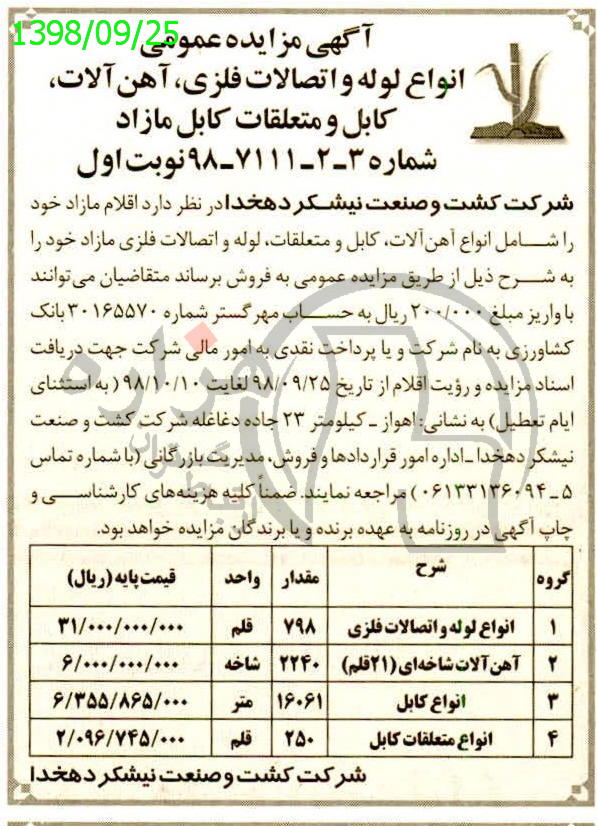 1398/09/25
آگهی مزایده عمومی
انواع لوله و اتصالات فلزی، آهن آلات،
کابل و متعلقات کابل مازاد
شماره ۳-۲-۷۱۱۱-۹۸ نوبت اول
شرکت کشت و صنعت نیشکر دهخدا در نظر دارد اقلام مازاد خود
را شامل انواع آهن‌آلات، کابل و متعلقات، لوله و اتصالات فلزی مازاد خود را
به شرح ذیل از طریق مزایده عمومی به فروش برساند متقاضیان می‌توانند
با واریز مبلغ ۲۰۰/۰۰۰ ریال به حساب مهر گستر شماره ۳۰۱۶۵۵۷۰ بانک
کشاورزی به نام شرکت و یا پرداخت نقدی به امور مالی شرکت جهت دریافت
اسناد مزایده و رؤیت اقلام از تاریخ ۹۸/۰۹/۲۵ لغایت ۹۸/۱۰/۱۰ ( به استثنای
ایام تعطیل) به نشانی: اهواز ـ کیلومتر ۲۳ جاده دغاغله شرکت کشت و صنعت
نیشکر دهخدا ـ اداره امور قراردادها و فروش، مدیریت بازرگانی (با شماره تماس
۵ ـ ۰۶۱۳۳۱۳۶۰۹۴) مراجعه نمایند. ضمناً کلیه هزینه‌های کارشناسی و
چاپ آگهی در روزنامه به عهده برنده و یا برندگان مزایده خواهد بود.
گروه شرح مقدار واحد قیمت پایه (ریال)
۱ انواع لوله و اتصالات فلزی ۷۹۸ قلم ۳۱/۰۰۰/۰۰۰/۰۰۰
۲ آهن آلات شاخه‌ای (۲۱ قلم) ۲۲۴۰ شاخه ۶/۰۰۰/۰۰۰/۰۰۰
۳ انواع کابل ۱۶۰۶۱ متر ۶/۳۵۵/۸۶۵/۰۰۰
۴ انواع متعلقات کابل ۲۵۰ قلم ۲/۰۹۶/۷۴۵/۰۰۰
شرکت کشت و صنعت نیشکر دهخدا
هزاره